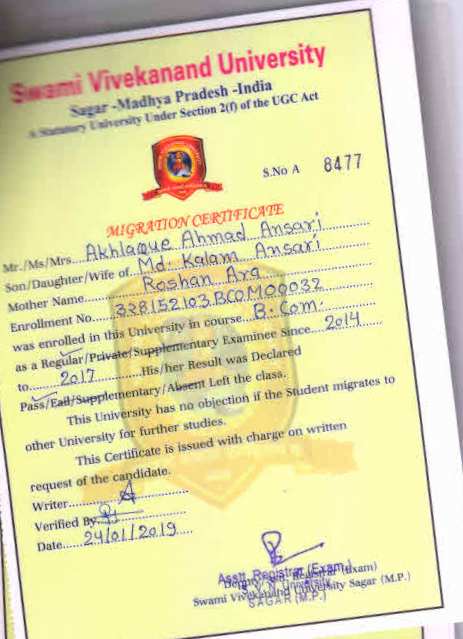 Swami Vivekanand University
Sagar -Madhya Pradesh -India
A Statutory University Under Section 2(f) of the UGC Act
S.No A 8477
MIGRATION CERTIFICATE
Mr./Ms/Mrs....Akhlaque Ahmad Ansari
Son/Daughter/Wife of..Md. Kalam Ansari
Mother Name........Roshan Ara
Enrollment No.....328152103BCOM00032
was enrolled in this University in course..B.Com.
as a Regular/Private/Supplementary Examinee Since....2014
to......2017......His/her Result was Declared
Pass/Fail/Supplementary/Absent Left the class.
This University has no objection if the Student migrates to
other University for further studies.
This Certificate is issued with charge on written
request of the candidate.
Writer
Verified By
Date.....24/01/2019
Asstt. Registrar (Exam)
Registrar (Exam)
Swami Vivekanand University Sagar (M.P.)
SAGAR (M.P.)